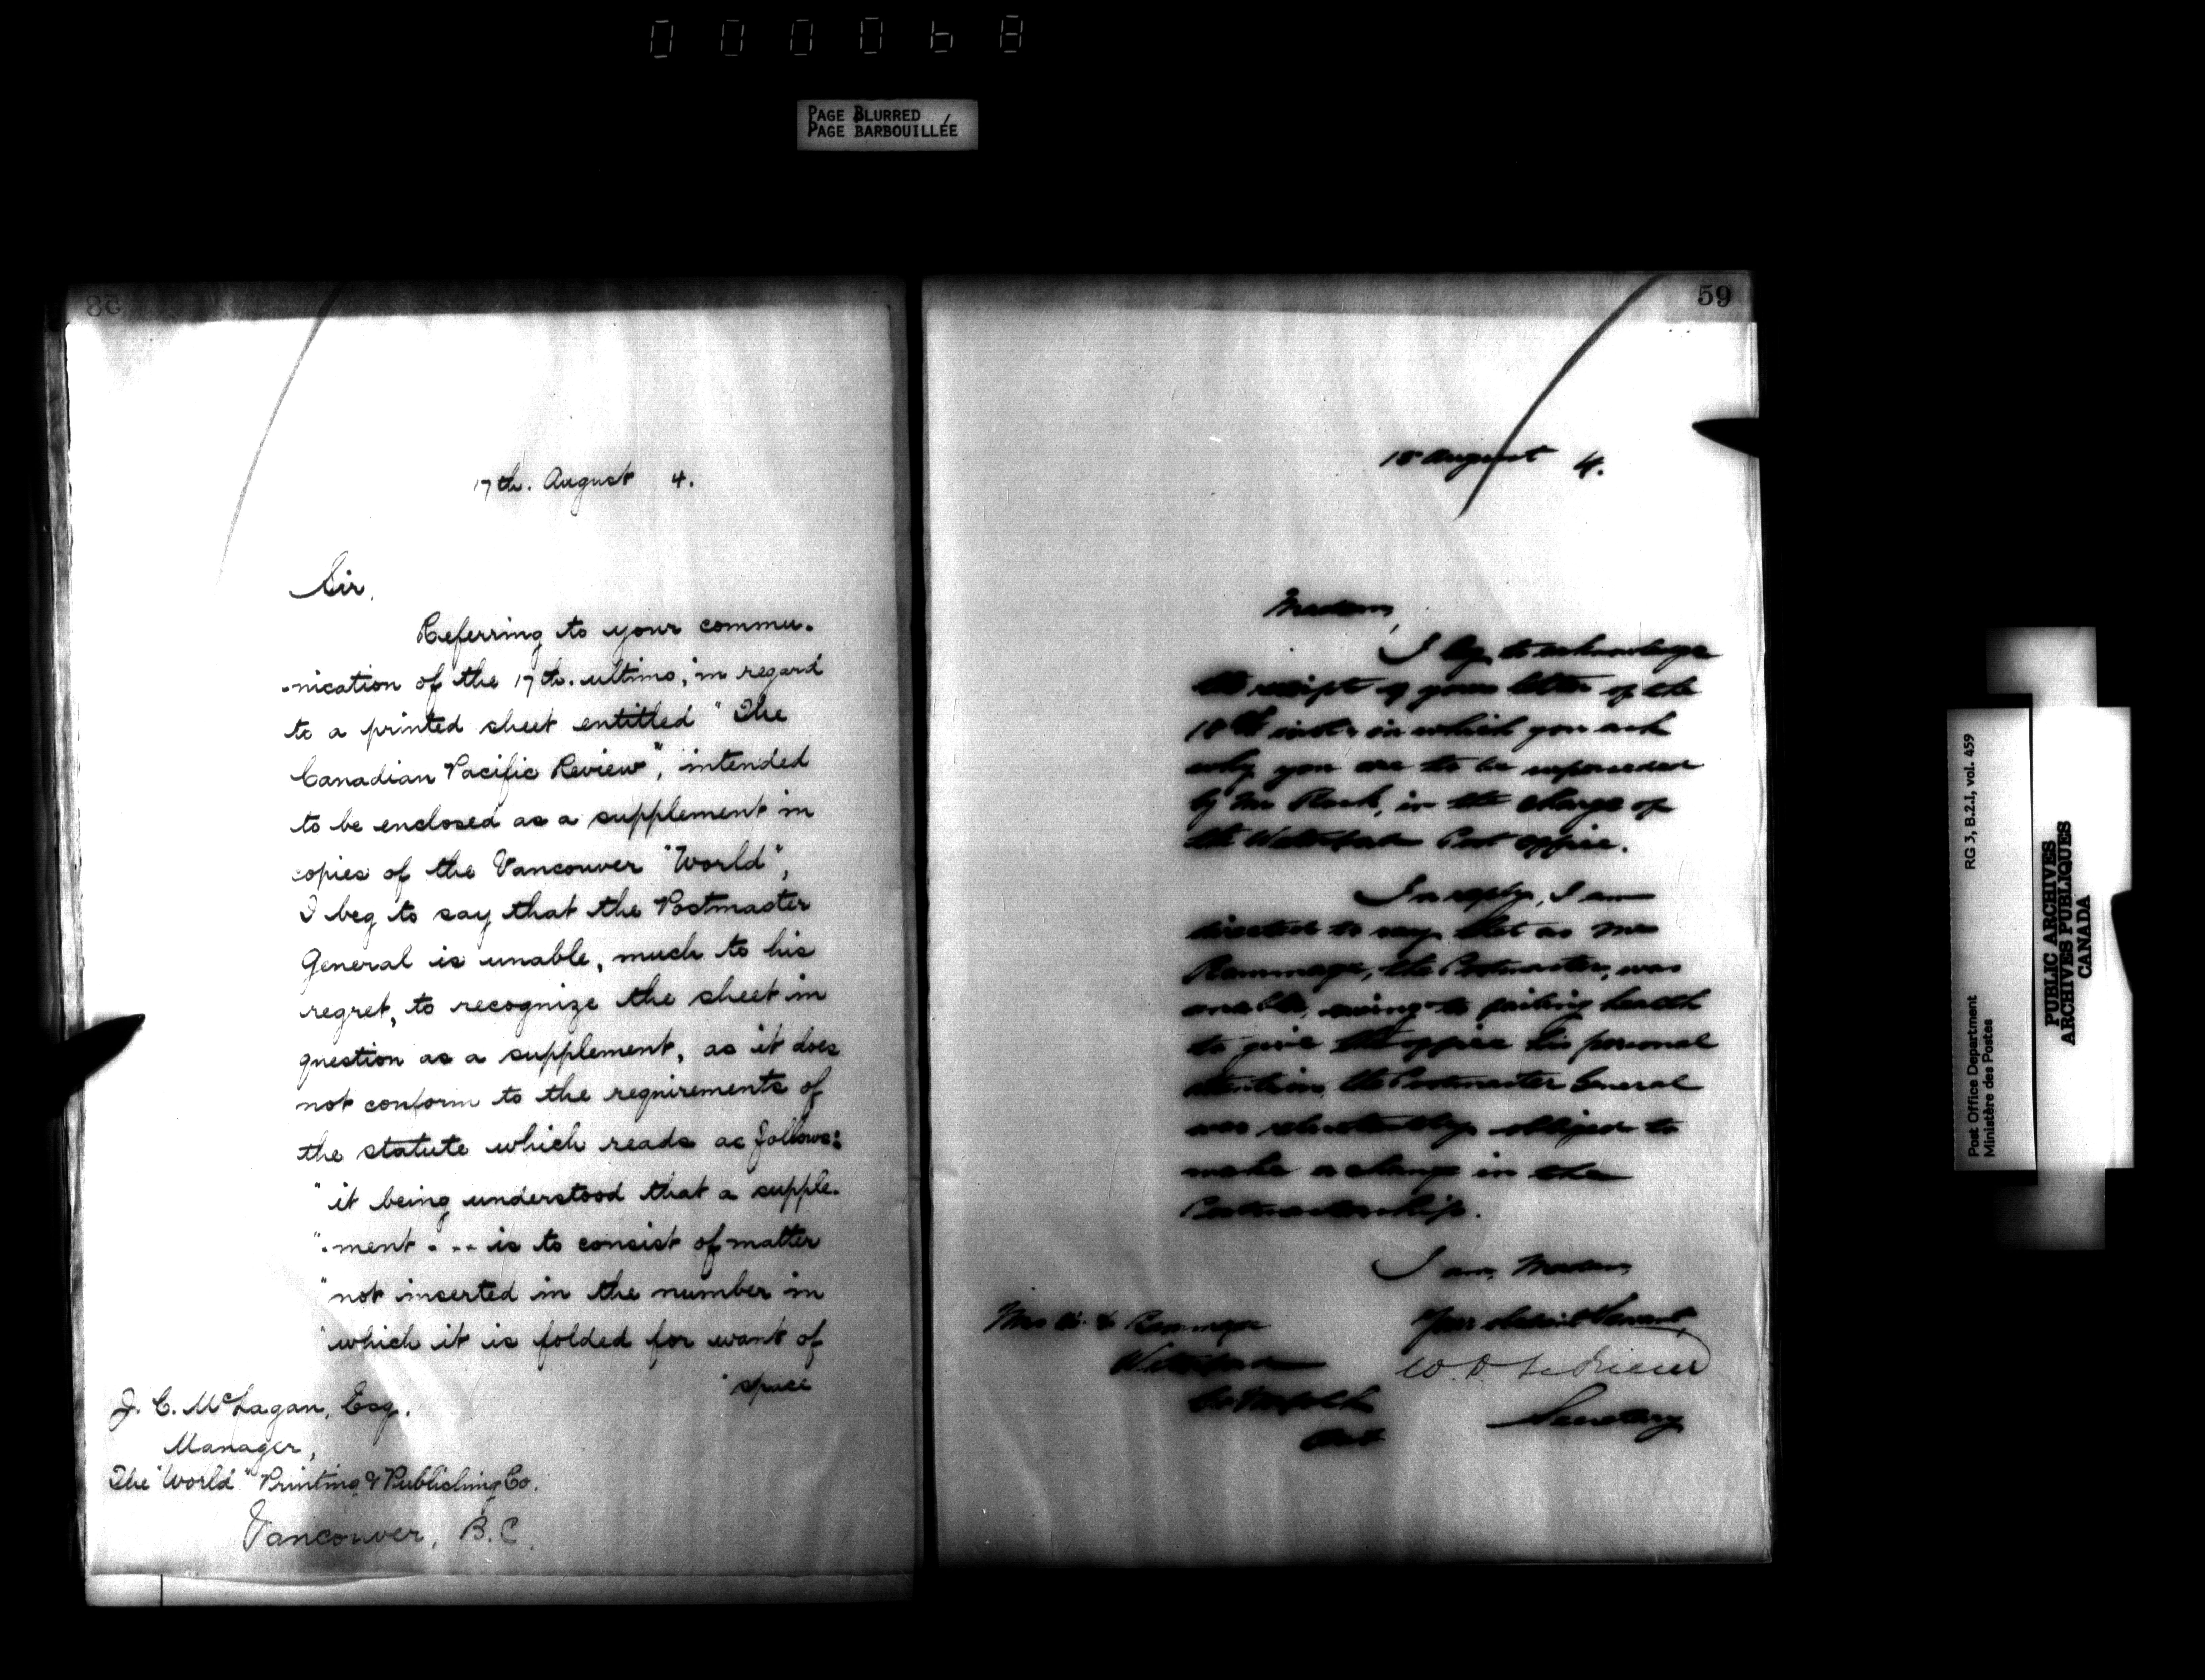 PAGE BLURRED
PAGE BARBOUILLÉE
17th. August 4.
Sir,
Referring to your commu-
-nication of the 17th. ultimo, in regard
to a printed sheet entitled "The
Canadian Pacific Review", intended
to be enclosed as a supplement in
copies of the Vancouver "World",
I beg to say that the Postmaster
General is unable, much to his
regret, to recognize the sheet in
question as a supplement, as it does
not conform to the requirements of
the statute which reads as follows:
"it being understood that a supple-
"-ment - - - is to consist of matter
"not inserted in the number in
"which it is folded for want of
"space
J. C. McLagan, Esq.
Manager,
The "World" Printing & Publishing Co.
Vancouver, B.C.
59
August 4.
Madam,
I beg to acknowledge
the receipt of your letter of the
inst. in which you ask
why you are to be superseded
by Mr in the charge of
the Post Office.
In reply, I am
directed to say that as Mr
Rammage, the Postmaster, was
unable, owing to failing health
to give the office his personal
attention, the Postmaster General
was reluctantly obliged to
make a change in the
Postmastership.
I am, Madam,
Your obedient Servant,
Secretary
Mrs Rammage
Co Norfolk
Ont
Post Office Department RG 3, B.2.1, vol. 459
Ministère des Postes
PUBLIC ARCHIVES
ARCHIVES PUBLIQUES
CANADA